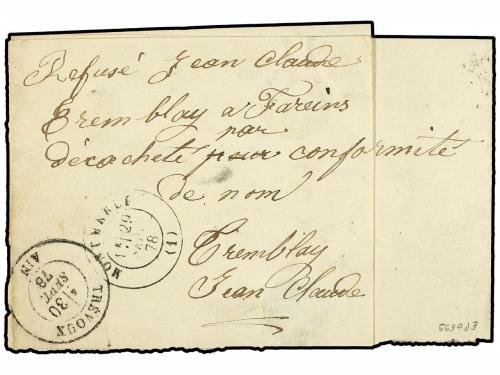 Refusé Jean Claude
Tremblay a Fareins
par
décacheté pour conformité
de nom
Tremblay
Jean Claude
MONTMERLE (1)
29
78
TRÉVOUX AIN
30
SEPT
78